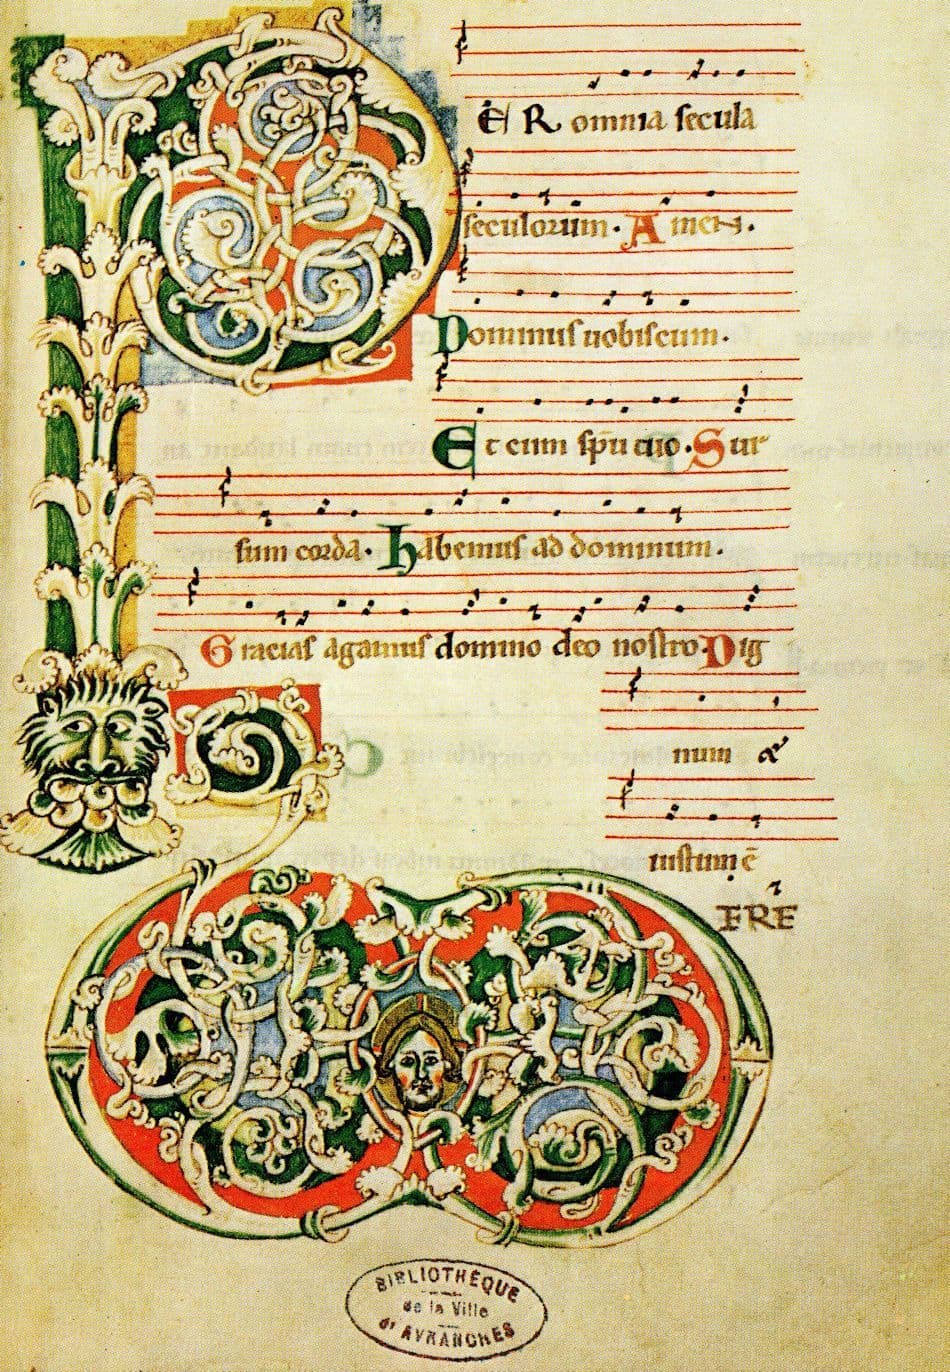 PER omnia secula
seculorum. Amen.
Dominus uobiscum.
Et cum sp̄u tuo. Sur
sum corda. habemus ad dominum.
Gracias agamus domino deo nostro. Dig
num &
iustum ē
ERE
BIBLIOTHÈQUE
de la Ville
d'AVRANCHES